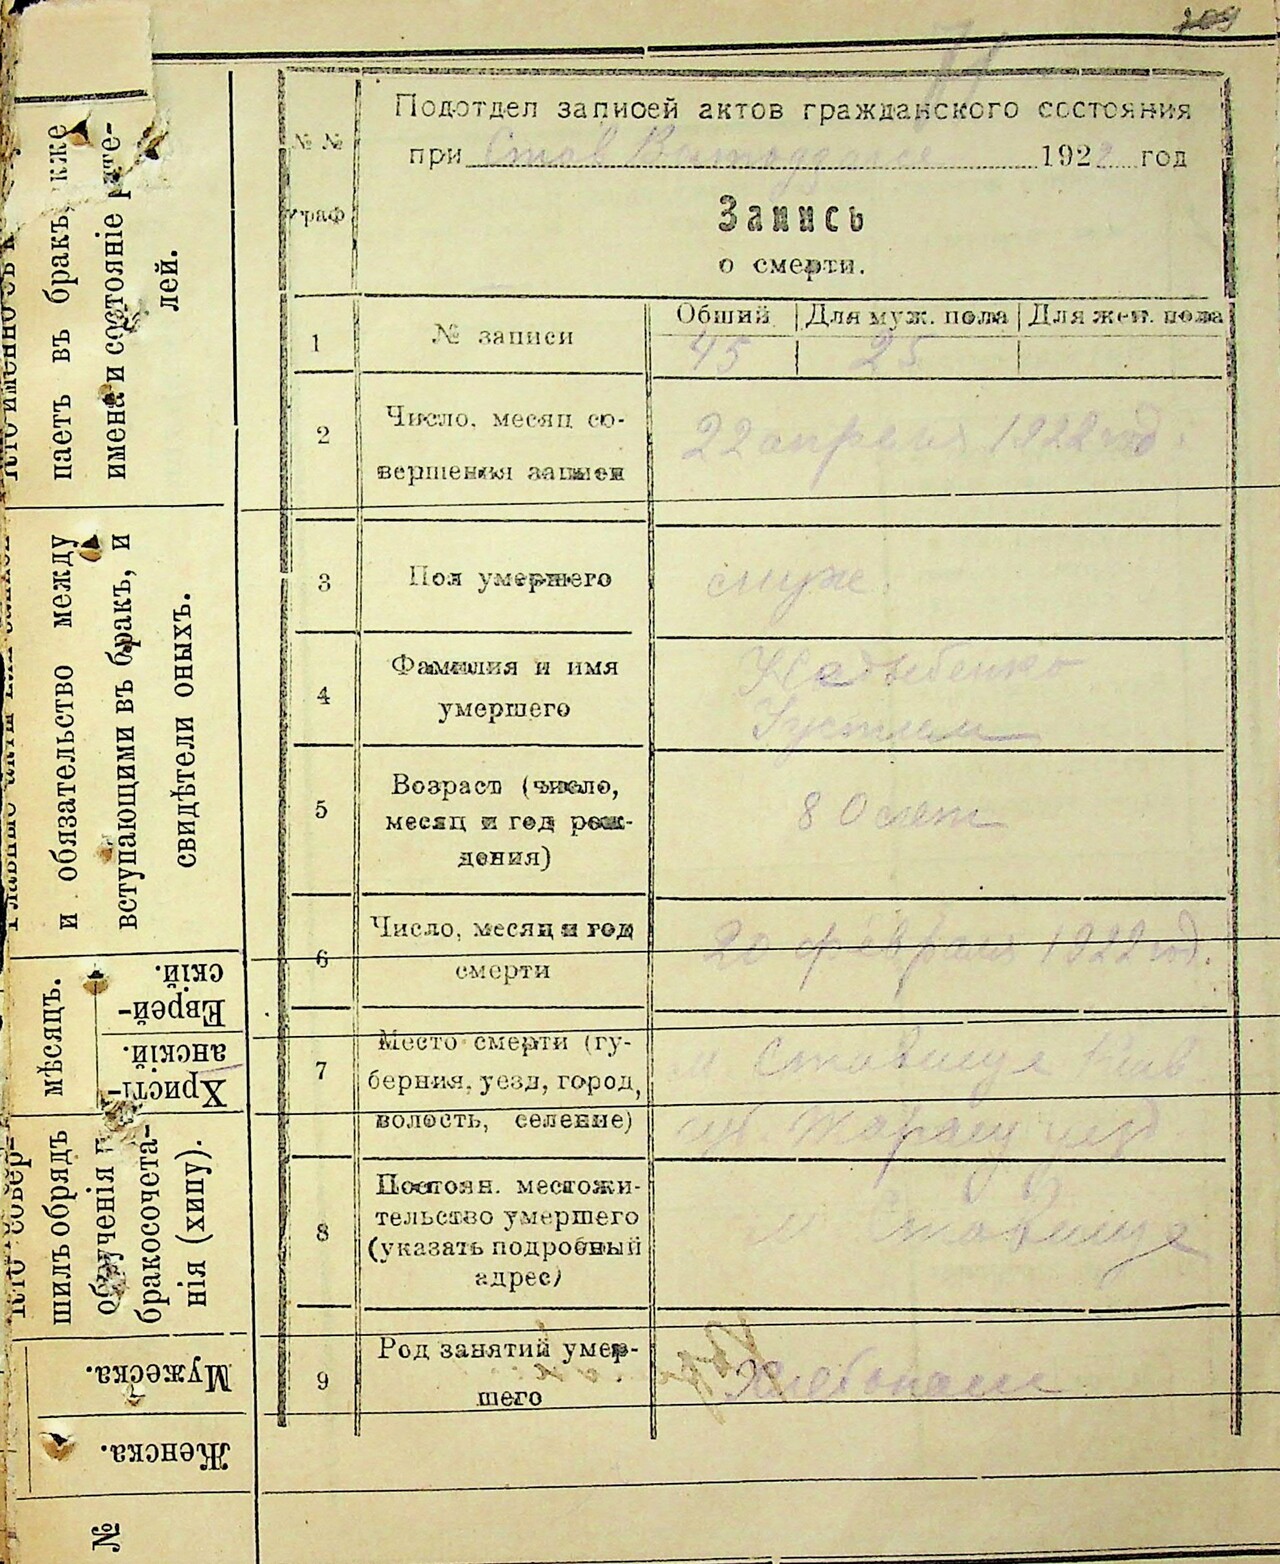 209
Подотдел записей актов гражданского состояния
при Став 1922 год
№ №
граф
Запись
о смерти.
1 № записи Общий Для муж. пола Для жен. пола
45 25
2 Число, месяц со-
вершения записи
22 апреля 1922 год.
3 Пол умершего муж.
4 Фамилия и имя
умершего
Устим
5 Возраст (число,
месяц и год рож-
дения)
80 лет
6 Число, месяц и год
смерти
20 февраля 1922 год.
7 Место смерти (гу-
берния, уезд, город,
волость, селение)
м. Ставище Киев
губ Таращ уезд
8 Постоян. местожи-
тельство умершего
(указать подробный
адрес)
м Ставище
9 Род занятий умер-
шего
Хлебопаш
паетъ въ бракъ,
имена и состояніе роте-
лей.
и обязательство между
вступающими въ бракъ, и
свидѣтели оныхъ.
мѣсяцъ.
Еврей-
скій.
Христі-
анскій.
шилъ обрядъ
обрученія
бракосочета-
нія (хипу).
Мужеска.
Женска.
№